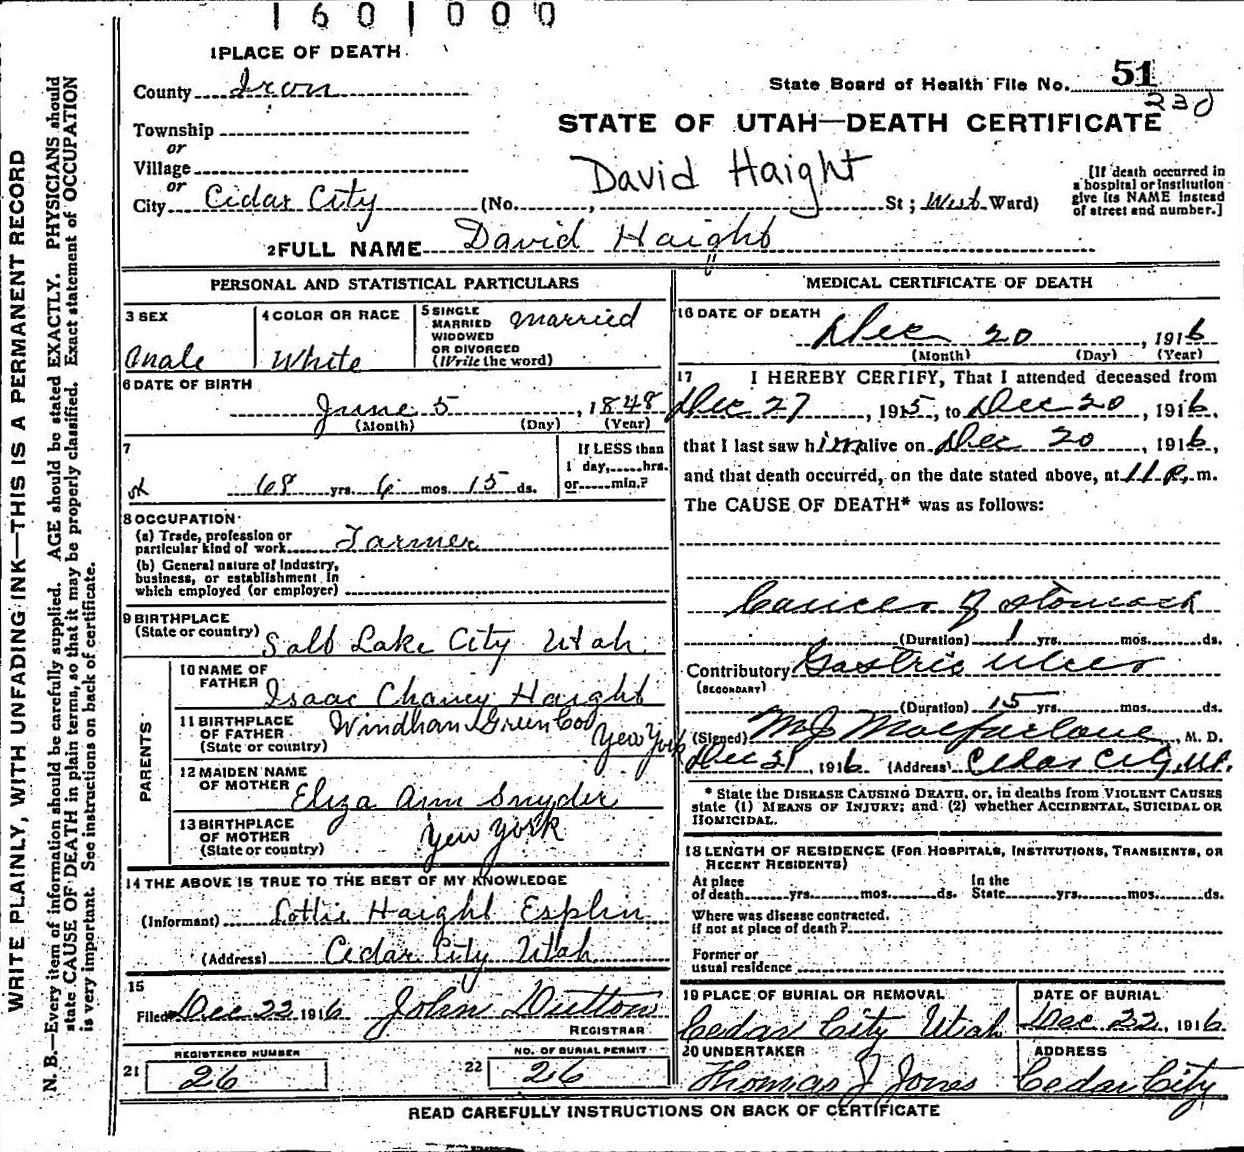 1601000
1 PLACE OF DEATH
County Iron
State Board of Health File No. 51
230
Township
or
Village
or
City Cidar City
STATE OF UTAH—DEATH CERTIFICATE
David Haight
(No. , St; West Ward)
[If death occurred in
a hospital or institution
give its NAME instead
of street and number.]
2 FULL NAME David Haight
PERSONAL AND STATISTICAL PARTICULARS
3 SEX
Male
4 COLOR OR RACE
White
5 SINGLE
MARRIED
WIDOWED
OR DIVORCED
(Write the word)
Married
6 DATE OF BIRTH
June 5, 1848
(Month) (Day) (Year)
7
68 yrs. 6 mos. 15 ds.
If LESS than
1 day, hrs.
or min.?
8 OCCUPATION
(a) Trade, profession or
particular kind of work Farmer
(b) General nature of Industry,
business, or establishment in
which employed (or employer)
9 BIRTHPLACE
(State or country) Salt Lake City Utah.
PARENTS
10 NAME OF
FATHER Isaac Chancy Haight
11 BIRTHPLACE
OF FATHER
(State or country) Windham Green Co
New York
12 MAIDEN NAME
OF MOTHER Eliza Ann Snyder
13 BIRTHPLACE
OF MOTHER
(State or country) New York
14 THE ABOVE IS TRUE TO THE BEST OF MY KNOWLEDGE
(Informant) Lottie Haight Esplin
(Address) Cedar City Utah
15
Filed Dec 22 1916 John Dutton
REGISTRAR
21
REGISTERED NUMBER
26
22
NO. OF BURIAL PERMIT
26
MEDICAL CERTIFICATE OF DEATH
16 DATE OF DEATH
Dec 20, 1916
(Month) (Day) (Year)
17 I HEREBY CERTIFY, That I attended deceased from
Dec 27, 1915, to Dec 20, 1916,
that I last saw him alive on Dec 20, 1916,
and that death occurred, on the date stated above, at 11 P. m.
The CAUSE OF DEATH* was as follows:
Cancer of Stomach
(Duration) 1 yrs. mos. ds.
Contributory Gastric Ulcer
(SECONDARY)
(Duration) 15 yrs. mos. ds.
(Signed) M J Macfarlane, M. D.
Dec 21, 1916 (Address) Cedar City, Ut.
* State the DISEASE CAUSING DEATH, or, in deaths from VIOLENT CAUSES
state (1) MEANS OF INJURY; and (2) whether ACCIDENTAL, SUICIDAL OR
HOMICIDAL.
18 LENGTH OF RESIDENCE (FOR HOSPITALS, INSTITUTIONS, TRANSIENTS, OR
RECENT RESIDENTS)
At place
of death yrs. mos. ds.
In the
State yrs. mos. ds.
Where was disease contracted.
if not at place of death?
Former or
usual residence
19 PLACE OF BURIAL OR REMOVAL
Cedar City Utah
DATE OF BURIAL
Dec 22, 1916
20 UNDERTAKER
Thomas J Jones
ADDRESS
Cedar City
READ CAREFULLY INSTRUCTIONS ON BACK OF CERTIFICATE
WRITE PLAINLY, WITH UNFADING INK—THIS IS A PERMANENT RECORD
N. B.—Every item of information should be carefully supplied. AGE should be stated EXACTLY. PHYSICIANS should
state CAUSE OF DEATH in plain terms, so that it may be properly classified. Exact statement of OCCUPATION
is very important. See instructions on back of certificate.